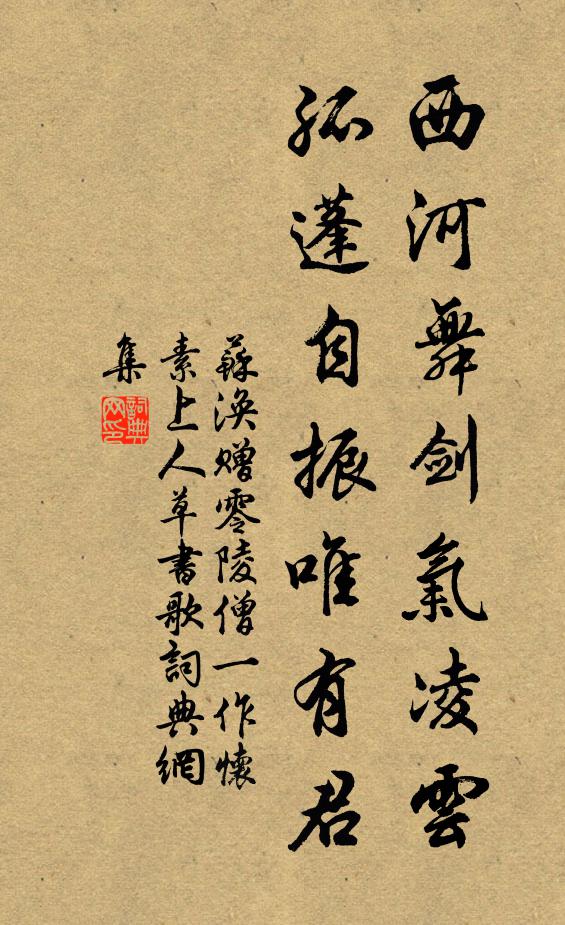 西河舞劍氣凌雲
孤蓬自振唯有君
蘇渙贈零陵僧一作懷
素上人草書歌詞典網
集
詞典
网印